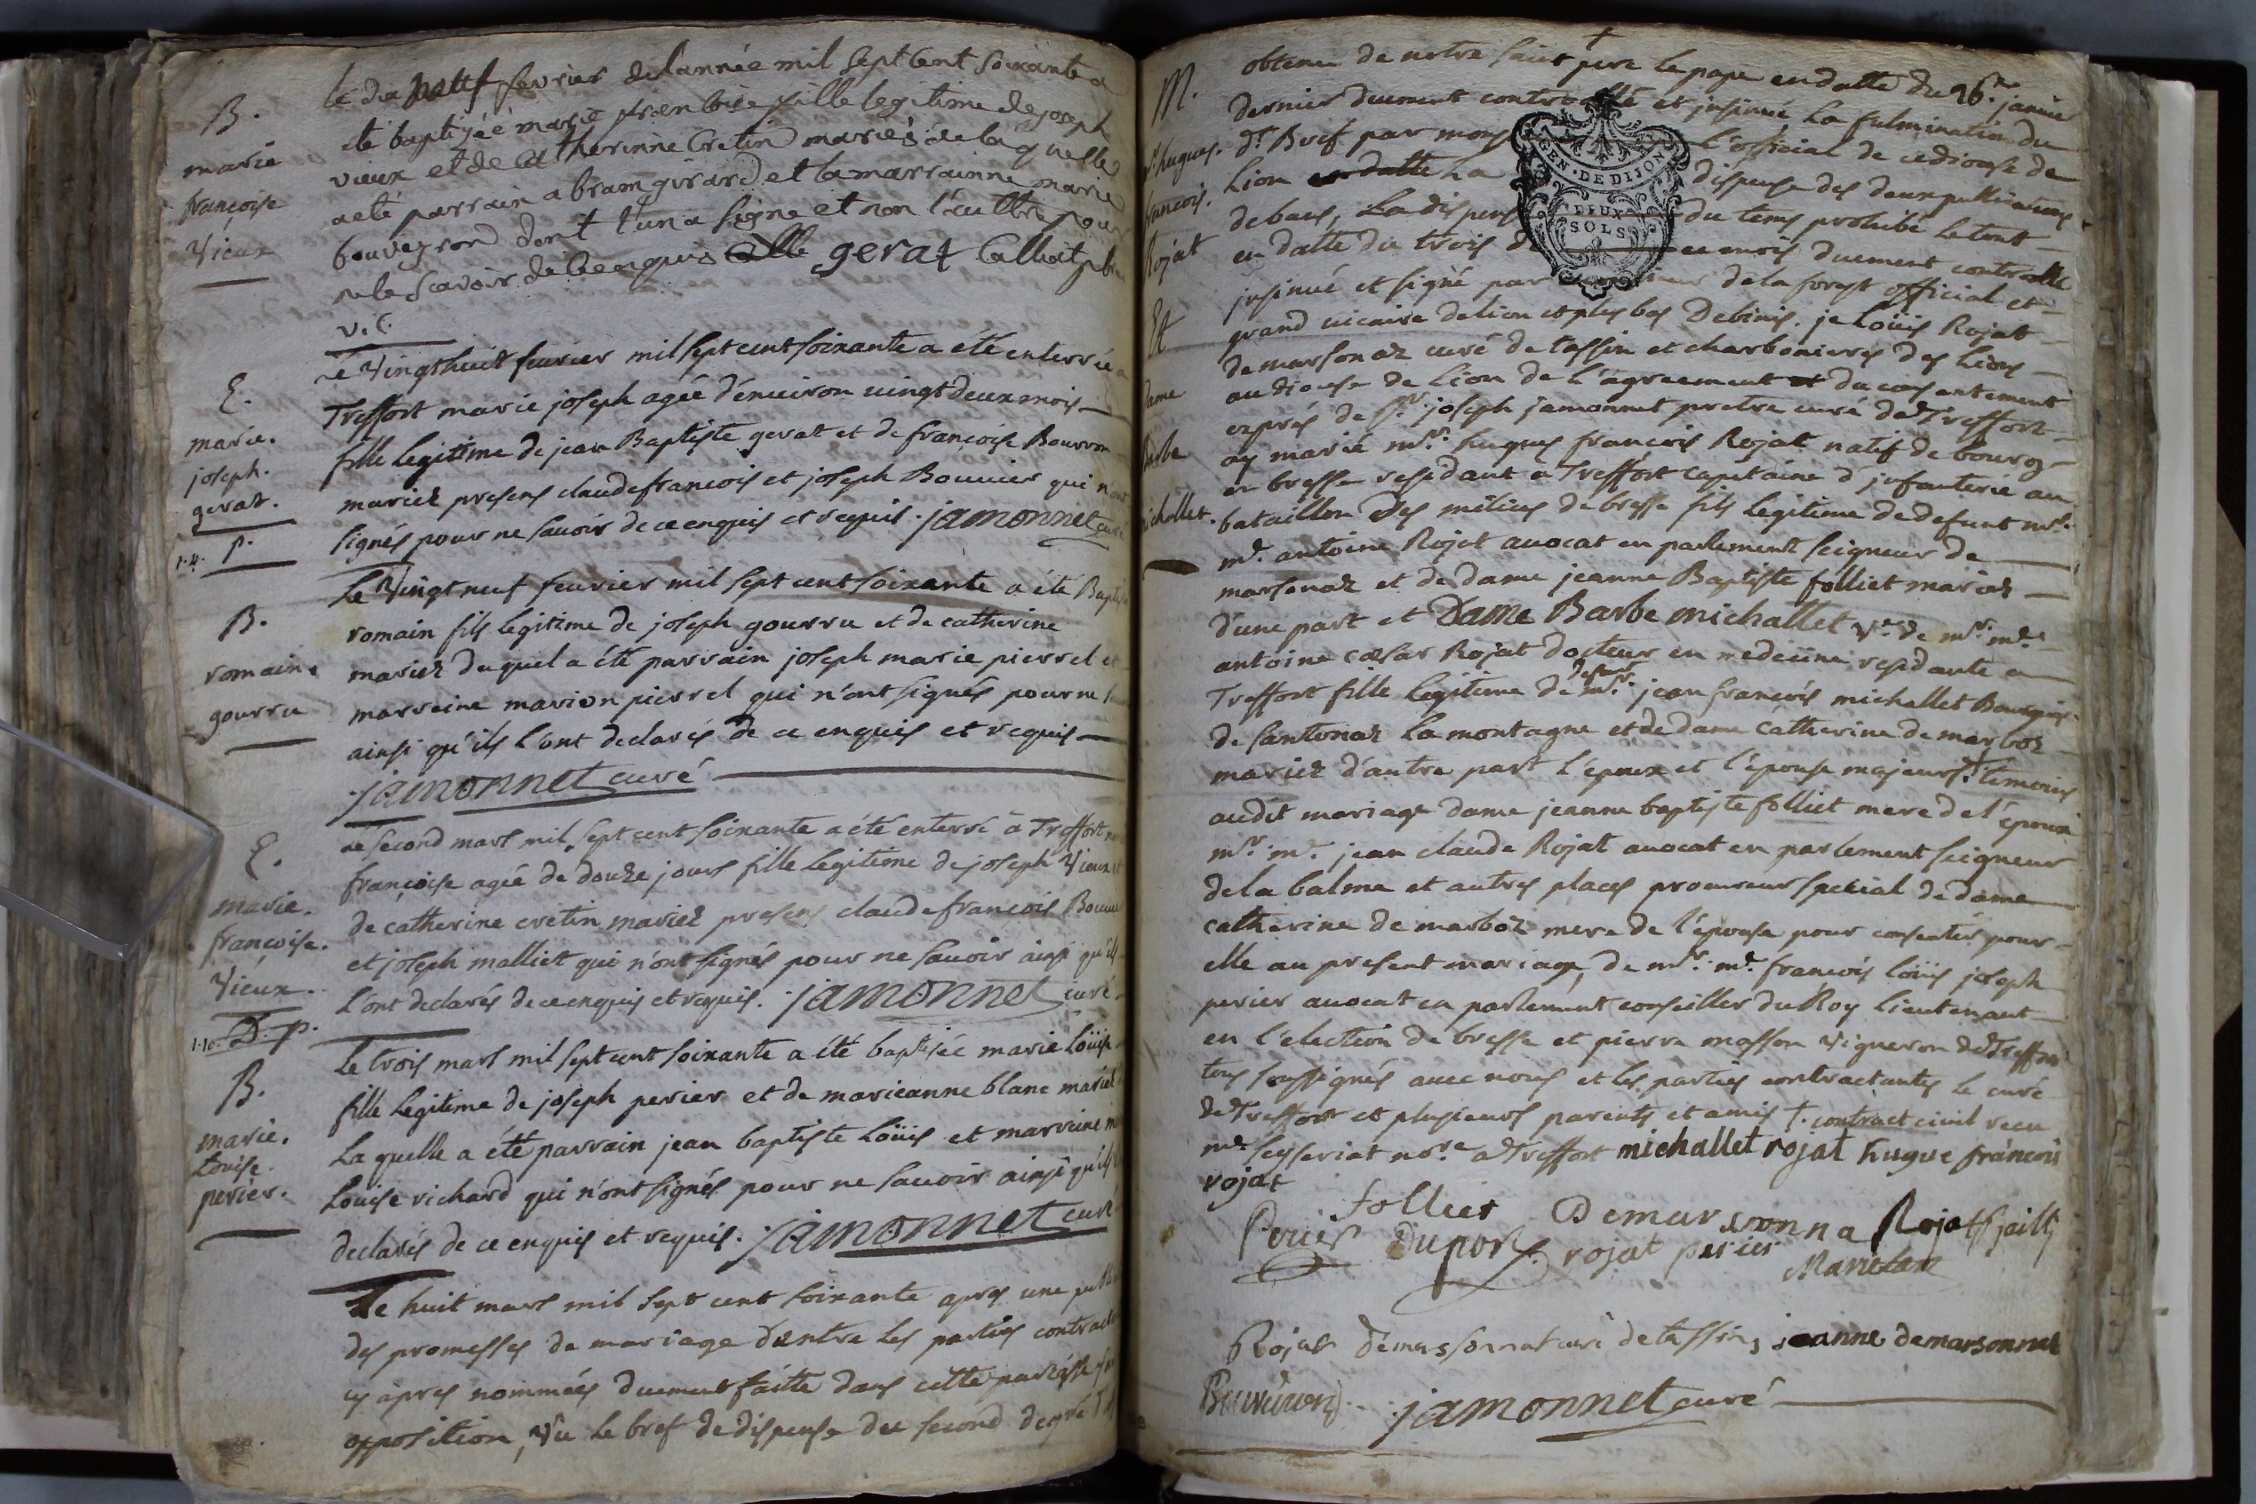 B.
marie
françoise
Vieux
le dix neuf fevrier de lannéé mil sept cent soixante a
ete baptizéé marie francoise fille legitime de joseph
vieux et de Catherinne Cretin mariés de la quelle
a eté parrain abram girard et la marrainne marie
bouveyron dont l'un a signe et non l'aultre pour
ne le scavoir de ce enquis gerat Calliat
v. c.
E.
marie.
joseph.
gerat.
1.4. p.
Le Vingt huit fevrier mil sept cent soixante a été enterrée a
Treffort marie joseph agéé d'environ vingt deux mois
fille legitime de jean Baptiste gerat et de françoise Bourron
mariez presens claude francois et joseph Bouvier qui n'ont
signés pour ne savoir de ce enquis et requis. jamonnet curé
B.
romain.
gourru
Le Vingt neuf fevrier mil sept cent soixante a été Baptisé
romain fils legitime de joseph gourru et de catherine
mariez du quel a été parrain joseph marie pierrel et
marraine marion pierrel qui n'ont signés pour ne
ainsi qu'ils l'ont declarés de ce enquis et requis
jamonnet curé
E.
marie.
françoise.
Vieux.
1.10. D. p.
Le second mars mil sept cent soixante a été enterré à Treffort
françoise agéé de douze jours fille legitime de joseph Vieux et
de catherine cretin mariez presens claude francois Bouvier
et joseph malliet qui n'ont signés pour ne savoir ainsi qu'ils
l'ont declarés de ce enquis et requis. jamonnet curé
B.
marie.
Louise.
perier.
Le trois mars mil sept cent soixante a été baptisée marie Loüise
fille legitime de joseph perier et de marieanne blanc mariez
La quelle a été parrain jean baptiste Loüis et marraine
Louise richard qui n'ont signés pour ne savoir ainsi qu'ils
declarés de ce enquis et requis. jamonnet curé
Le huit mars mil sept cent soixante apres une
des promesses de mariage d'entre les parties
cy apres nommées duement faitte dans cette paroisse
opposition, Vû le bref de dispense du second degré
M.
hugues.
francois.
Rojat
Et
Dame
Barbe
michallet.
obtenu de notre saint pere le pape en datte du 26e. janvier
dernier duement controllé et insinué La fulmination du
dt. Bref par mons l'official de ce diocese de
Lion La dispense des deux publications
de bans, La dispense du tems prohibé le tout
en datte du trois de ce mois duement controllé
insinué et signé par de la forest official et
grand vicaire de lion et plus bas Debinis. je Loüis Rojat
de marsonaz curé de tassin et charbonieres des liens
au diocese de Lion de l'agreement et du consentement
exprés de sr. joseph jamonnet pretre curé de Treffort
ay marié mr. hugues françois Rojat natif de bourg
en bresse residant a Treffort Capitaine d'infanterie au
bataillon des milices de bresse fils legitime de defunt mr.
me. antoine Rojat avocat en parlement seigneur de
marsonaz et de dame jeanne Baptiste folliet mariez
d'une part et Dame Barbe michallet ve. de mr. me.
antoine cæsar Rojat docteur en medecine residante a
Treffort fille legitime de defunt mr. jean françois michallet Bourgeois
de santonaz La montagne et de dame Catherine de marboz
mariez d'autre part l'epoux et l'épouse majeurs. temoins
audit mariage dame jeanne baptiste folliet mere de l'époux
mr. me. jean claude Rojat avocat en parlement seigneur
de la balme et autres places procureur special de dame
catherine de marboz mere de l'épouse pour consentir pour
elle au present mariage, de mr. me. francois loüis joseph
perier avocat en parlement conseiller du Roy Lieutenant
en l'election de bresse et pierre masson Vigneron de Treffort
tous soussignés avec nous et les parties contractantes le curé
de Treffort et plusieurs parents et amis †. contract civil recu
me. seyseriat nore. a Treffort michallet rojat hugue françois
rojat
folliet Demarsonna Rojat
Perier Duport rojat perier
Rojat Demarsonnat curé de tassin, jeanne demarsonnat
jamonnet curé
GEN. DE DIJON
DEUX
SOLS